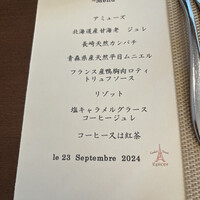 Menu
アミューズ
北海道産甘海老 ジュレ
長崎天然カンパチ
青森県産天然平目ムニエル
フランス産鴨胸肉ロティ
トリュフソース
リゾット
塩キャラメルグラース
コーヒージュレ
コーヒー又は紅茶
le 23 Septembre 2024